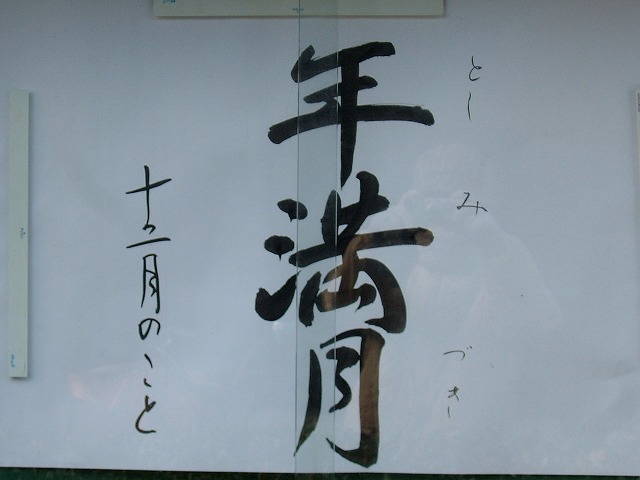 とし み づき
年満月
十二月のこと